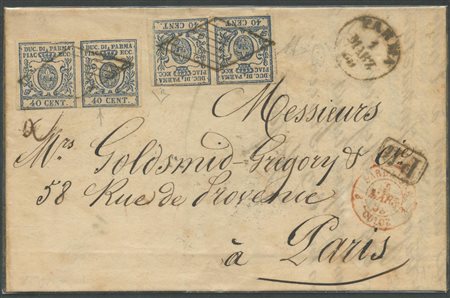 DUC. DI PARMA PIAC. ECC.
40 CENT.
DUC. DI PARMA PIAC. ECC.
40 CENT.
DUC. DI PARMA PIAC. ECC.
40 CENT.
DUC. DI PARMA PIAC. ECC.
40 CENT.
PARMA
Messieurs
Mrs Goldsmid-Grigory & Cie
P.D.
58 Rue de Provence
à Paris